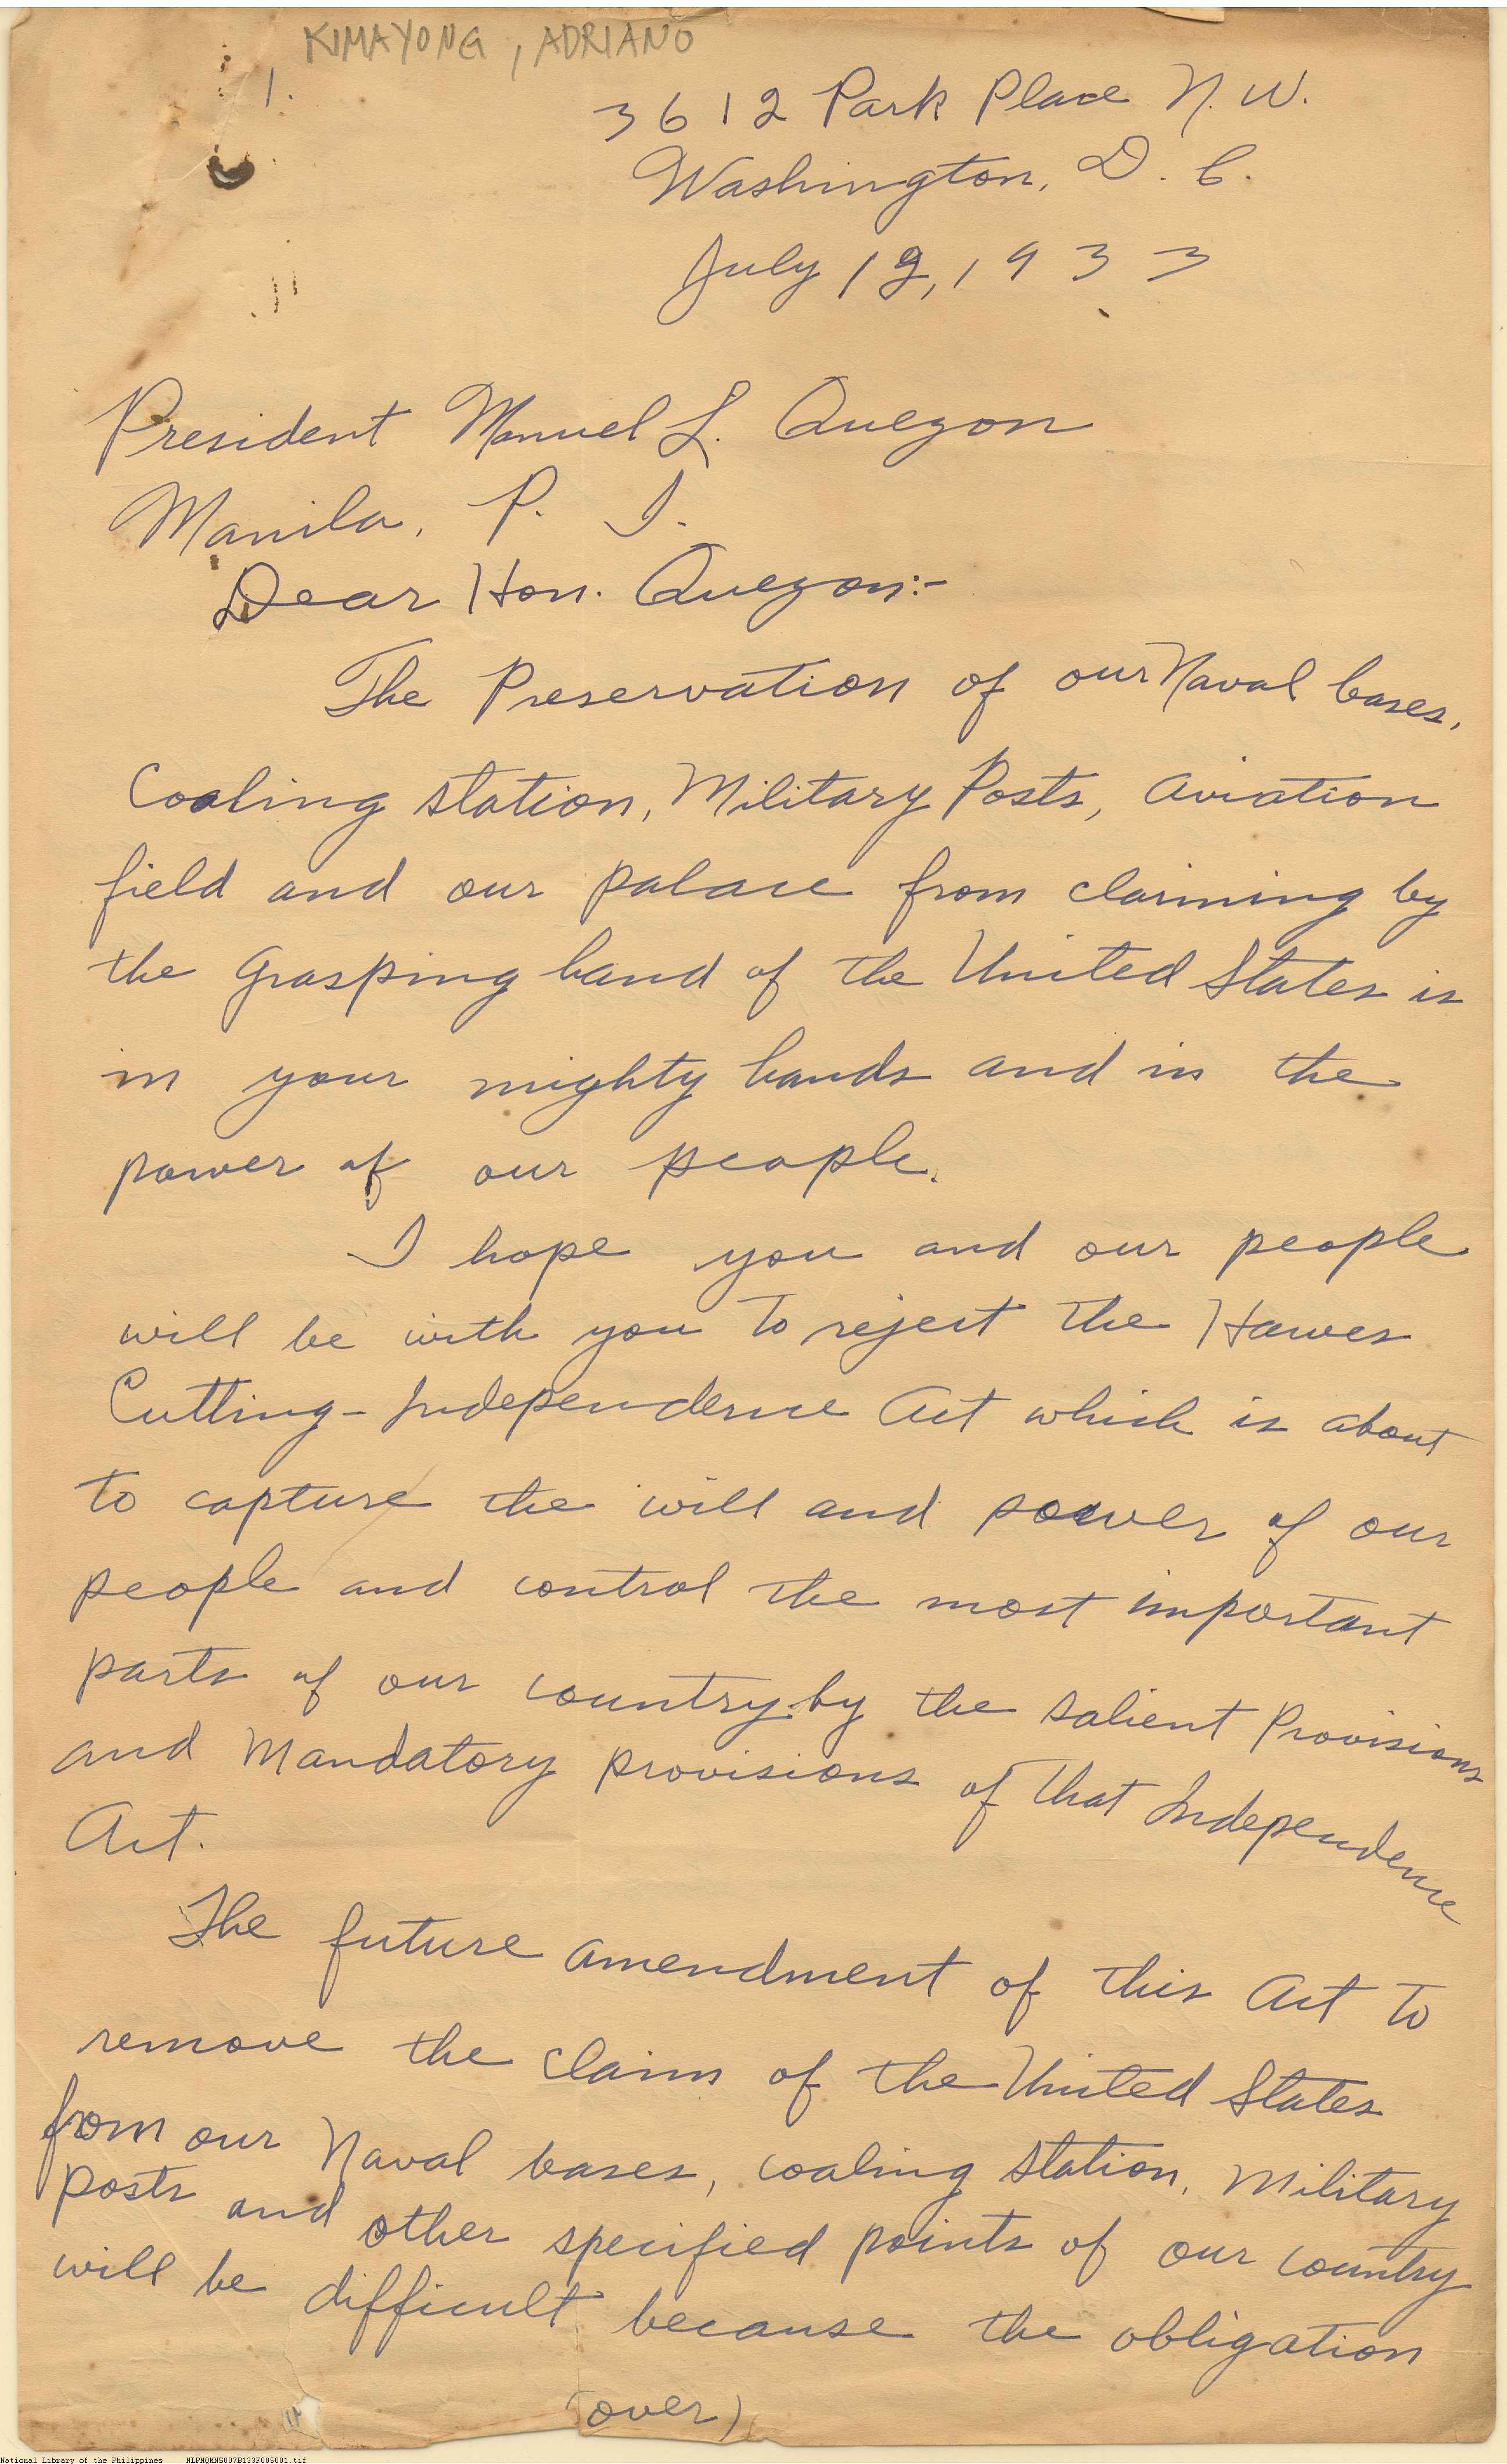 KIMAYONG, ADRIANO
1.
3612 Park Place N. W.
Washington, D. C.
July 12, 1933
President Manuel L. Quezon
Manila, P. I.
Dear Hon. Quezon:-
The Preservation of our Naval bases,
Coaling station, Military Posts, aviation
field and our palace from claiming by
the grasping hand of the United States is
in your mighty hands and in the
power of our people.
I hope you and our people
will be with you to reject the Hawes
Cutting-Independence Act which is about
to capture the will and power of our
people and control the most important
parts of our country by the salient Provisions
and Mandatory provisions of that Independence
Act.
The future amendment of this Act to
remove the claim of the United States
from our Naval bases, coaling station, Military
posts and other specified points of our country
will be difficult because the obligation
(over)
National Library of the Philippines NLPMQMNS007B133F005001.tif